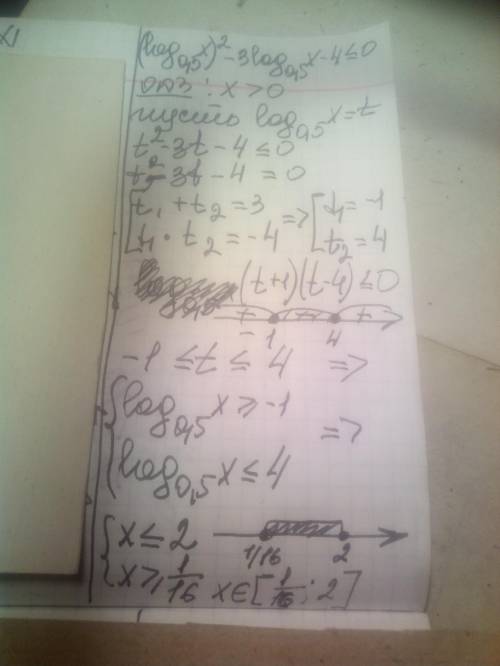 (log₀,₅x)² - 3log₀,₅x - 4 ≤ 0
ОДЗ: x > 0
пусть log₀,₅x = t
t² - 3t - 4 ≤ 0
t² - 3t - 4 = 0
[ t₁ + t₂ = 3 => [ t₁ = -1
[ t₁ · t₂ = -4 [ t₂ = 4
(t+1)(t-4) ≤ 0
-1 4
-1 ≤ t ≤ 4 =>
{ log₀,₅x ≥ -1 =>
{ log₀,₅x ≤ 4
{ x ≤ 2 1/16 2
{ x ≥ 1/16 x∈[1/16; 2]